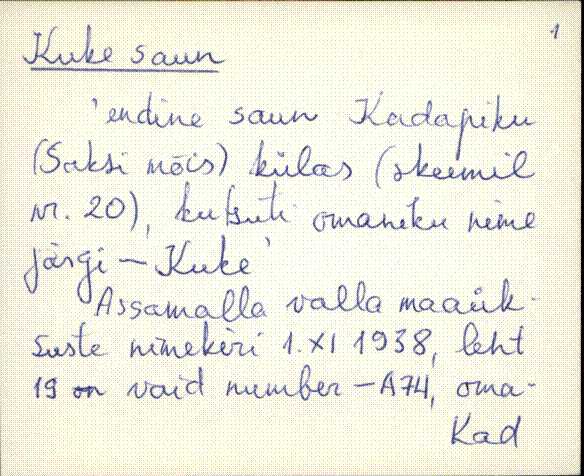 1
Kuke saun
'endine saun Kadapiku
(Saksi mõis) külas (skeemil
nr. 20), kutsuti omaniku nime
järgi – Kuke'
Assamalla valla maaük-
suste nimekiri 1. XI 1938, leht
19 on vaid number – A74, oma-
Kad